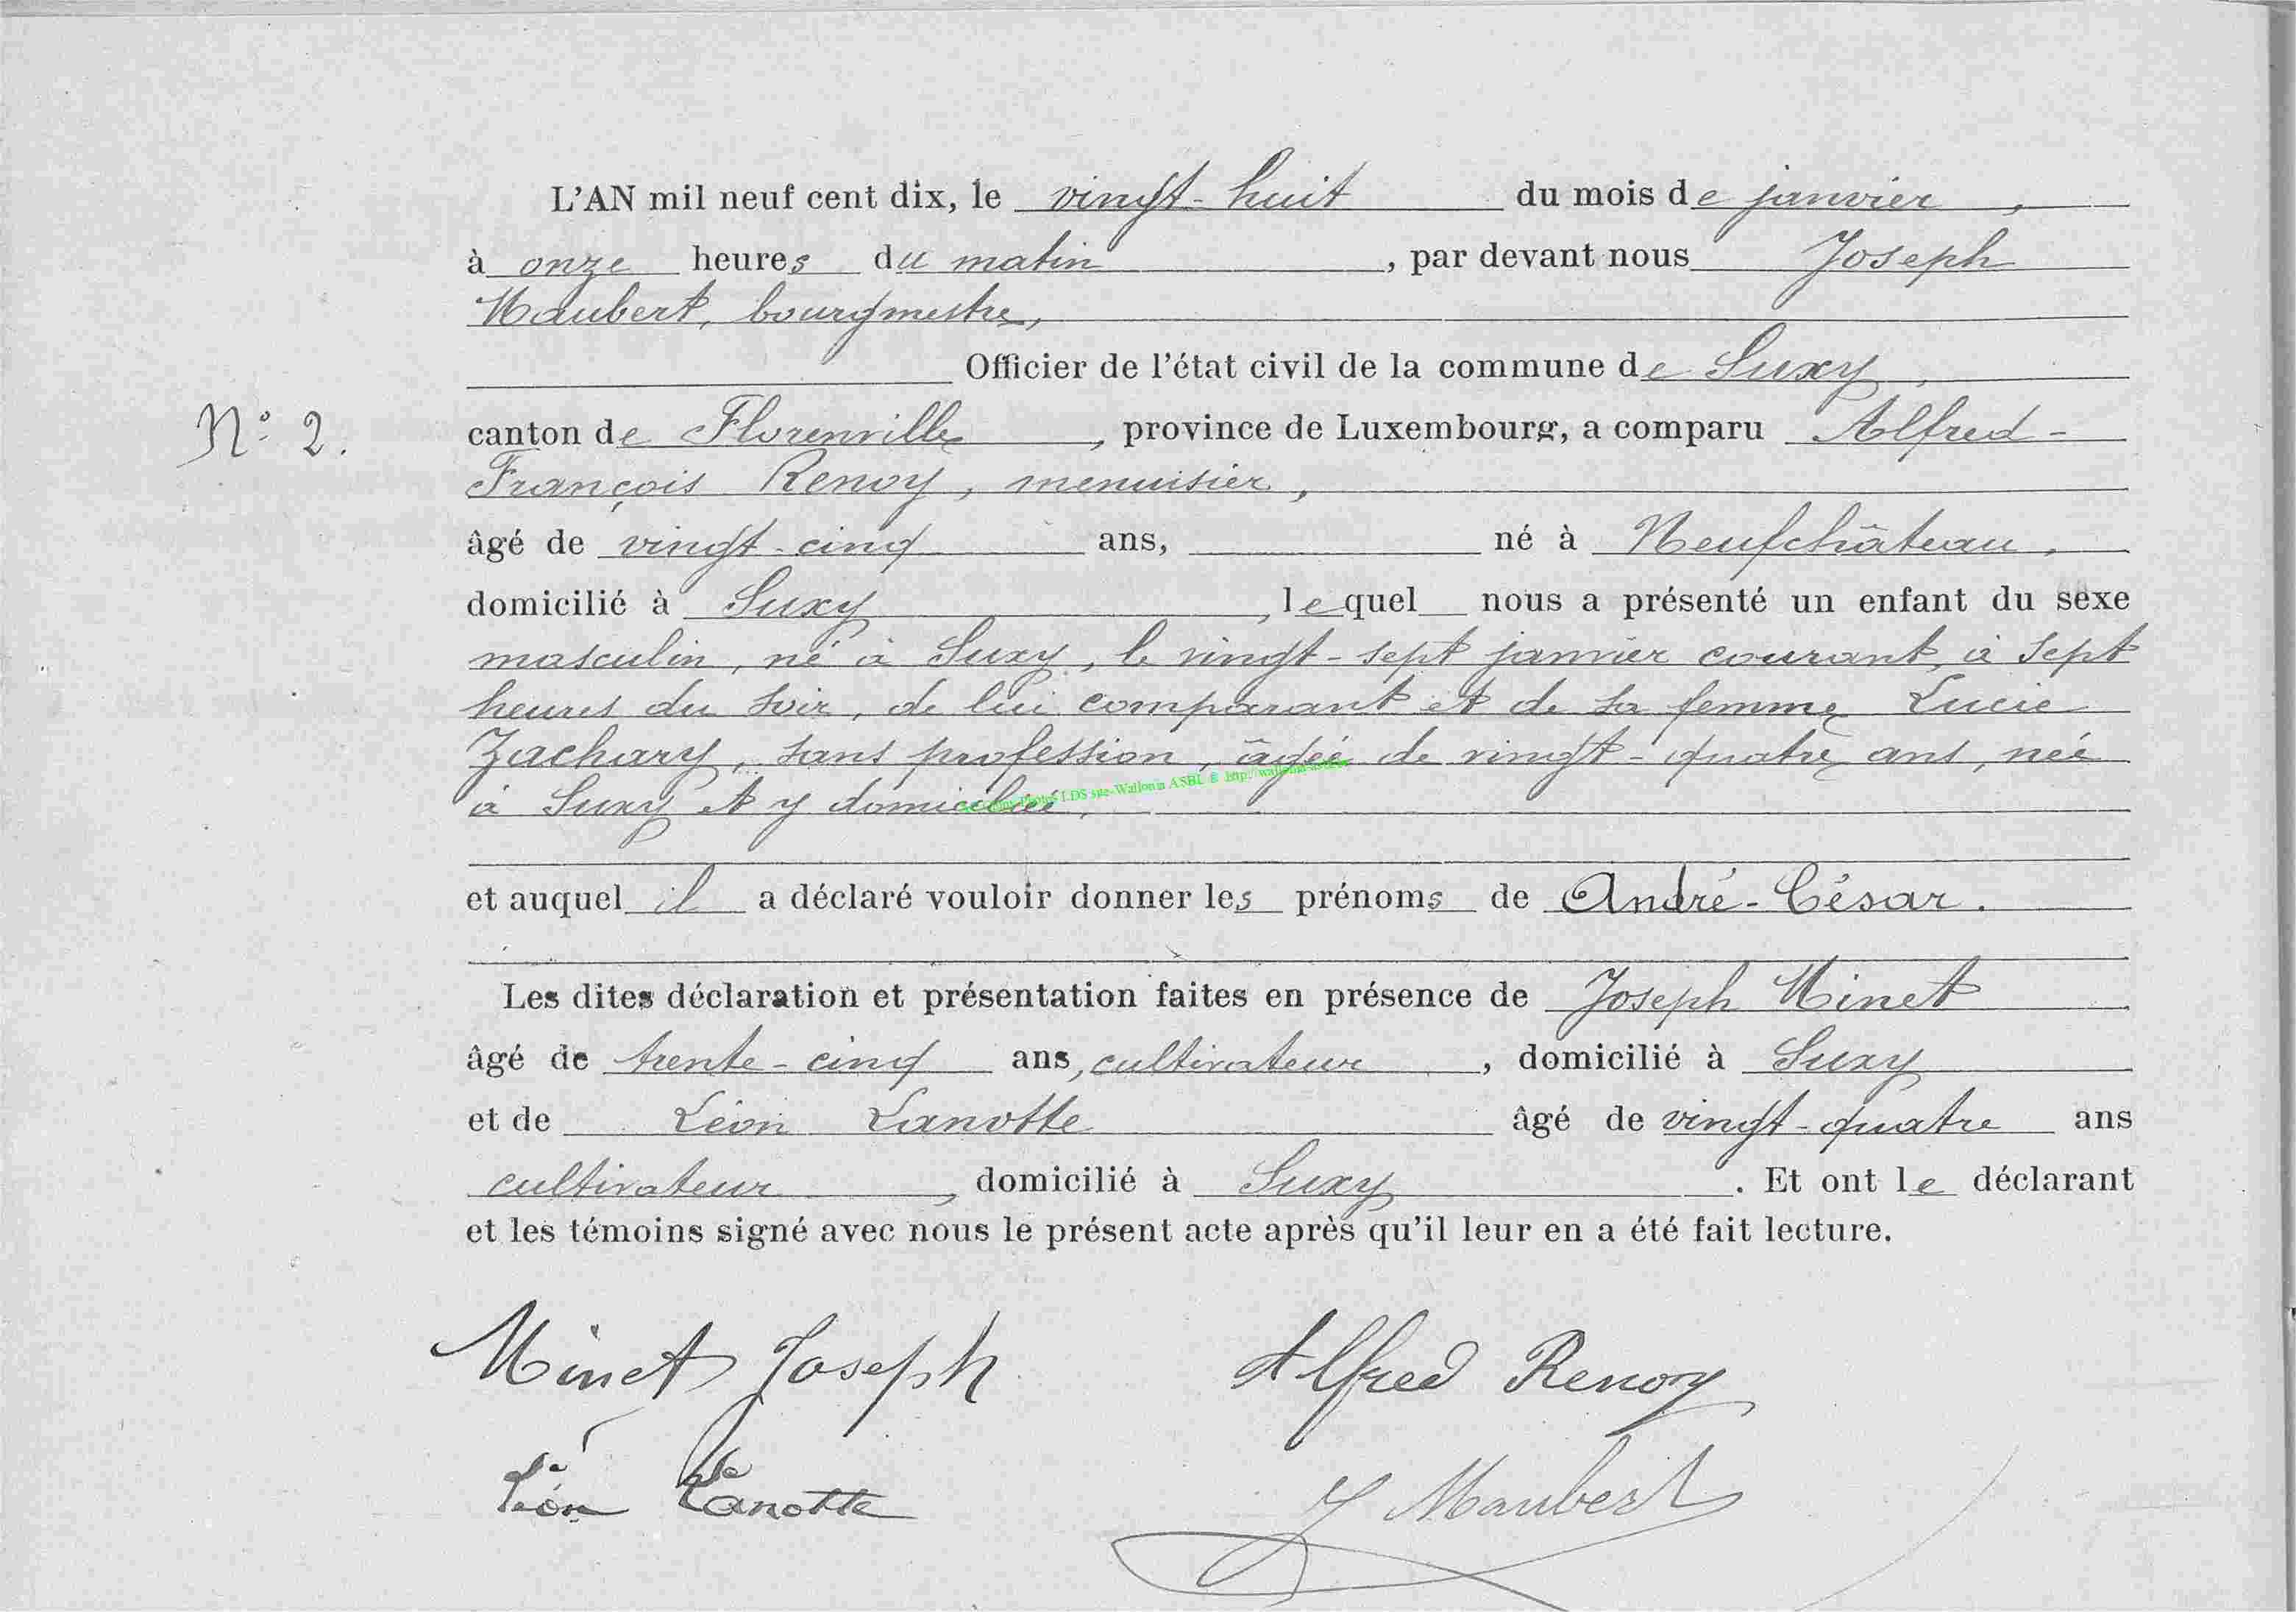 L'AN mil neuf cent dix, le vingt-huit du mois de janvier,
à onze heures du matin, par devant nous Joseph
Maubert, bourgmestre,
Officier de l'état civil de la commune de Suxy,
N° 2.
canton de Florenville, province de Luxembourg, a comparu Alfred-
François Renoy, menuisier,
âgé de vingt-cinq ans, né à Neufchâteau,
domicilié à Suxy, lequel nous a présenté un enfant du sexe
masculin, né à Suxy, le vingt-sept janvier courant, à sept
heures du soir, de lui comparant et de sa femme Lucie
Zachary, sans profession, âgée de vingt-quatre ans, née
à Suxy et y domiciliée,
LDS site-Wallonia ASBL © http://wallonia-asbl.be
et auquel il a déclaré vouloir donner les prénoms de André-César.
Les dites déclaration et présentation faites en présence de Joseph Minet
âgé de trente-cinq ans, cultivateur, domicilié à Suxy
et de Léon Lanotte âgé de vingt-quatre ans
cultivateur, domicilié à Suxy. Et ont le déclarant
et les témoins signé avec nous le présent acte après qu'il leur en a été fait lecture.
Minet Joseph Alfred Renoy
Léon Lanotte J Maubert